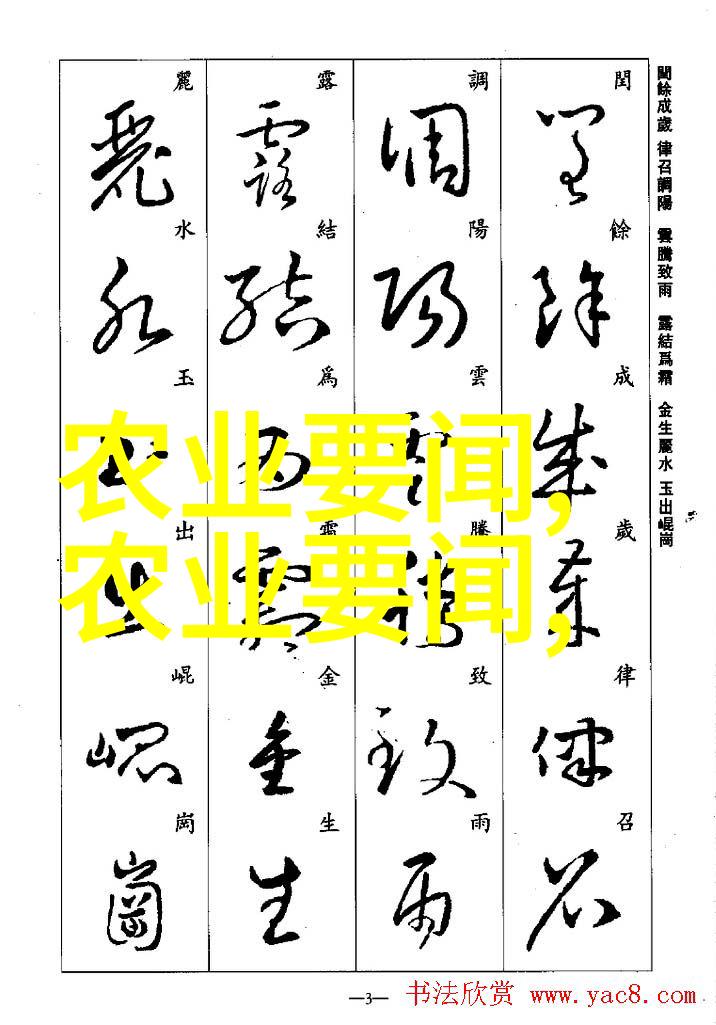 閏餘成歲 律召調陽 雲騰致雨 露結爲霜 金生麗水 玉出崐崗
閏
餘
成
歲
律
召
調
陽
雲
騰
致
雨
露
結
爲
霜
金
生
麗
水
玉
出
崐
崗
农业要闻,
农业要闻,
—3—
书法欣赏 www.yac8.com